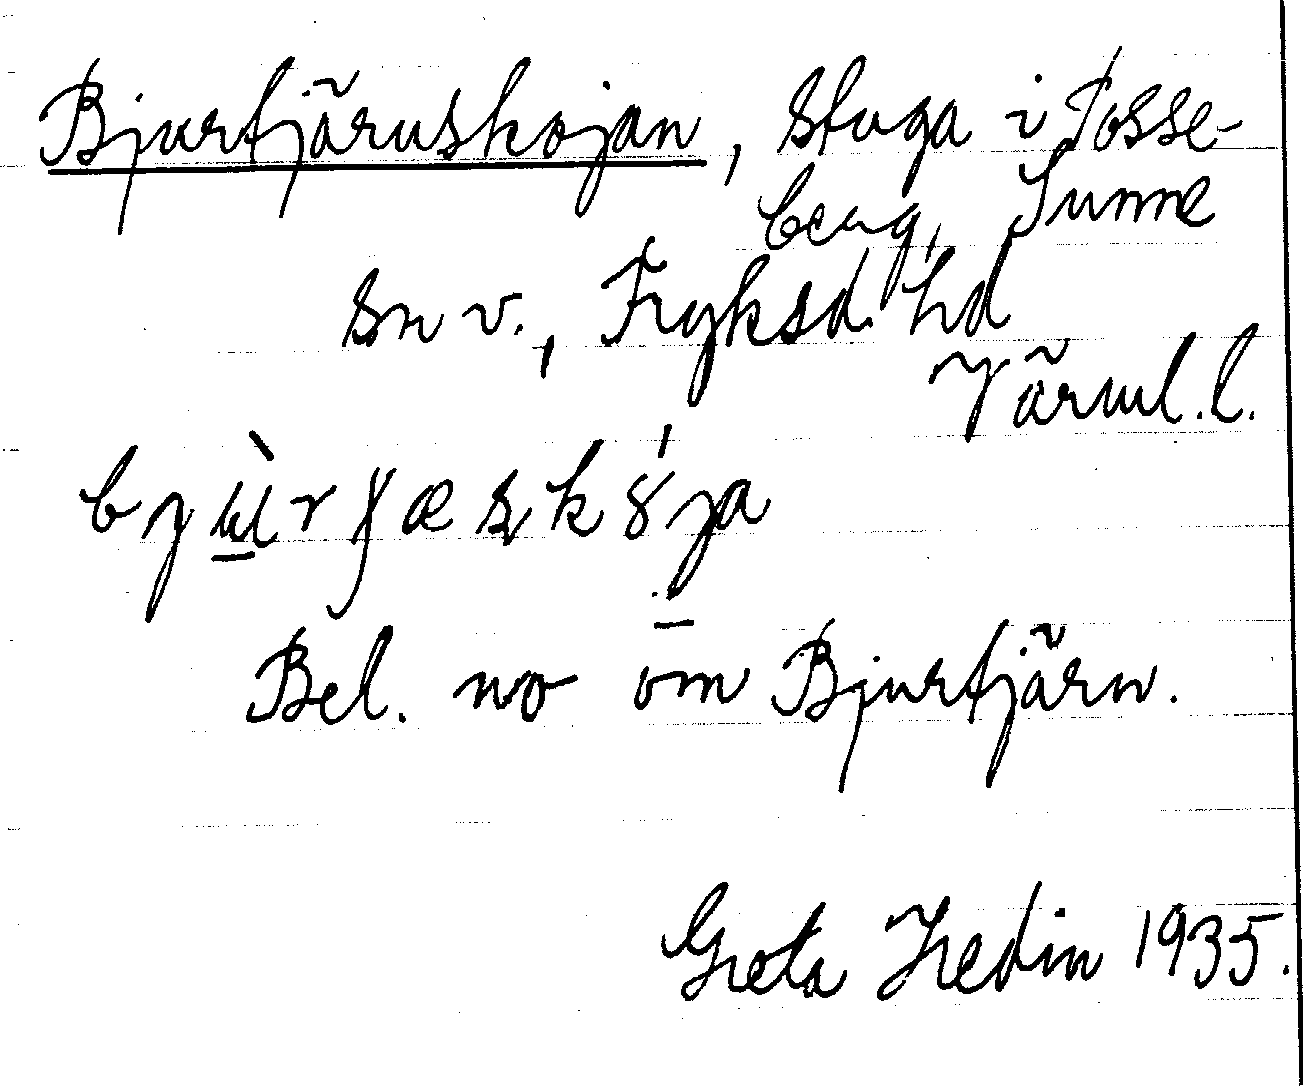 Bjurtjärnskojan, stuga i Posse-
berg, Sunne
sn v., Fryksd. hd
Värml. l.
Bel. no om Bjurtjärn.
Greta Hedin 1935.